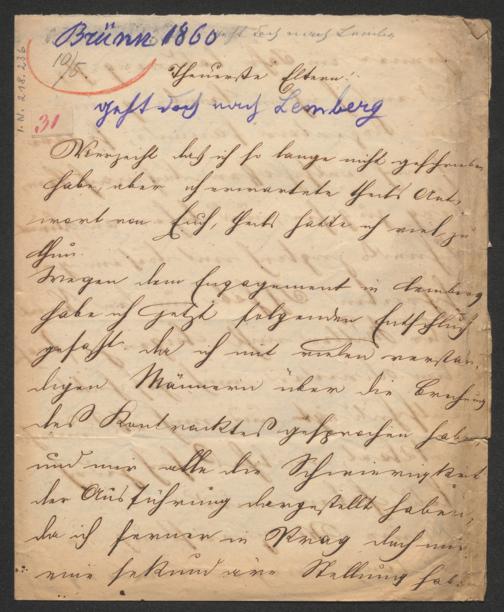 Brünn 1860
10/5
I.N. 218.236
31
Theuerste Eltern!
geht doch nach Lemberg
Verzeiht das ich so lange nicht geschrieben
habe, aber ich erwartete theils Ant-
wort von Euch, theils hatte ich viel zu
thun.
Wegen dem Engagement in Lemberg
habe ich jetzt folgenden Entschluß
gefaßt, da ich mit vielen verstän-
digen Männern über die Brechung
des Kontracktes gesprochen habe
und mir alle die Schwierigkeit
der Ausführung dargestellt haben,
da ich ferner in Prag doch nur
eine sekundäre Stellung hab